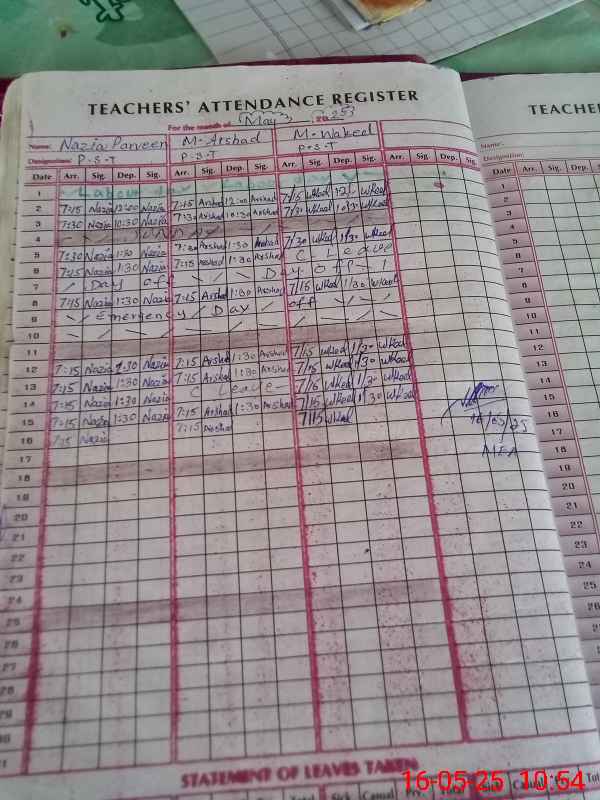 TEACHERS' ATTENDANCE REGISTER
For the month of May 20 25
Name: Nazia Parveen M. Arshad M. Wakeel
Designation: P.S.T P.S.T P.S.T
Date Arr. Sig. Dep. Sig. Arr. Sig. Dep. Sig. Arr. Sig. Dep. Sig. Arr. Sig. Dep. Sig.
1 Labour day
2 7:15 Nazia 12:00 Nazia 7:15 Arshad 12:00 Arshad 7/15 wkeel 12/ wkeel
3 7:30 Nazia 10:30 Nazia 7:30 Arshad 10:30 Arshad 7/30 wkeel 10/30 wkeel
4
5 7:30 Nazia 1:30 Nazia 7:30 Arshad 1:30 Arshad 7/30 wkeel 1/30 wkeel
6 7:45 Nazia 1:30 Nazia 7:15 Arshad 1:30 Arshad C Leave
7 Day off Day off
8 7:45 Nazia 1:30 Nazia 7:45 Arshad 1:30 Arshad 7/15 wkeel 1/30 wkeel
9 Emergency Day off
10
11
12 7:15 Nazia 1:30 Nazia 7:15 Arshad 1:30 Arshad 7/15 wkeel 1/30 wkeel
13 7:15 Nazia 1:30 Nazia 7:15 Arshad 1:30 Arshad 7/15 wkeel 1/30 wkeel
14 7:15 Nazia 1:30 Nazia C Leave 7/15 wkeel 1/30 wkeel
15 7:15 Nazia 1:30 Nazia 7:15 Arshad 1:30 Arshad 7/15 wkeel 1/30 wkeel
16 7:15 Nazia 7:15 Arshad 7/15 wkeel
16/05/25
MEA
17
18
19
20
21
22
23
24
25
26
27
28
29
30
31
STATEMENT OF LEAVES TAKEN
Sick Casual Prv. Total
TEACHER
Name:
Designation:
Date Arr. Sig. Dep. Sig.
1
2
3
4
5
6
7
8
9
10
11
12
13
14
15
16
17
18
19
20
21
22
23
24
25
26
27
28
29
16-05-25 10:54